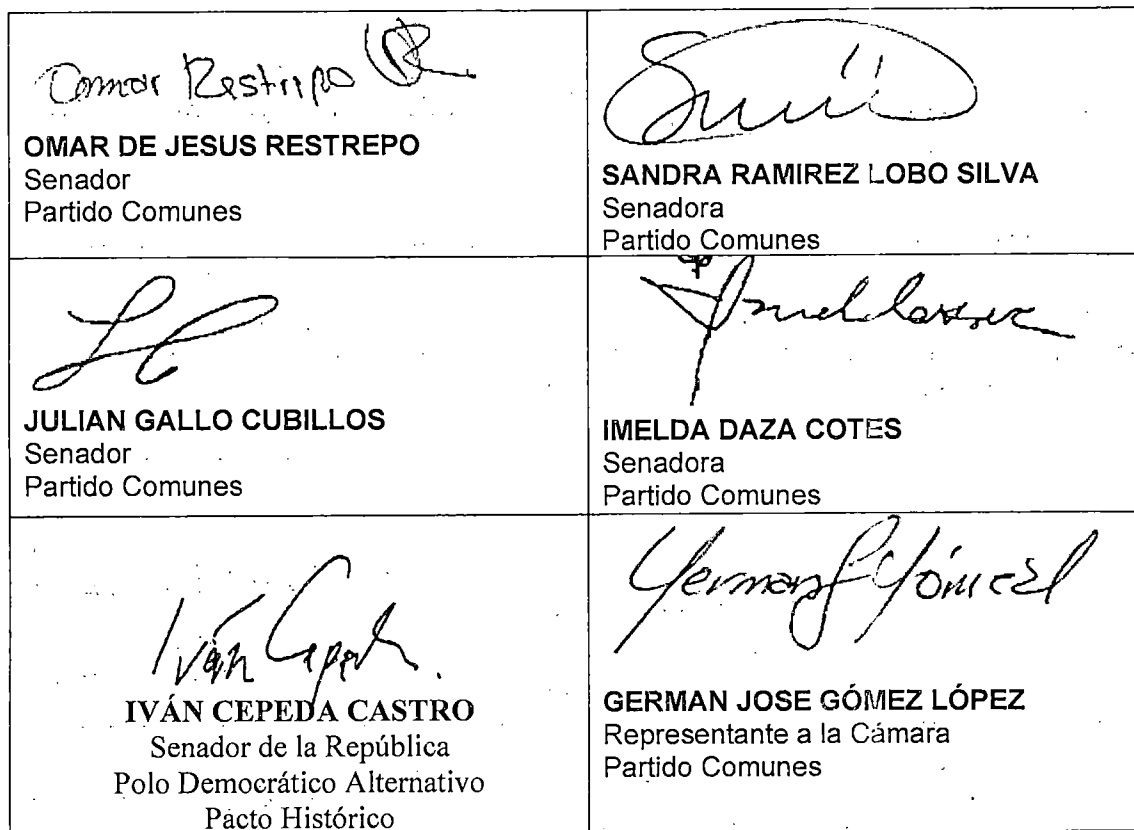 Omar Restrepo
OMAR DE JESUS RESTREPO
Senador
Partido Comunes
SANDRA RAMIREZ LOBO SILVA
Senadora
Partido Comunes
JULIAN GALLO CUBILLOS
Senador
Partido Comunes
IMELDA DAZA COTES
Senadora
Partido Comunes
Iván Cepeda
IVÁN CEPEDA CASTRO
Senador de la República
Polo Democrático Alternativo
Pacto Histórico
GERMAN JOSE GÓMEZ LÓPEZ
Representante a la Cámara
Partido Comunes